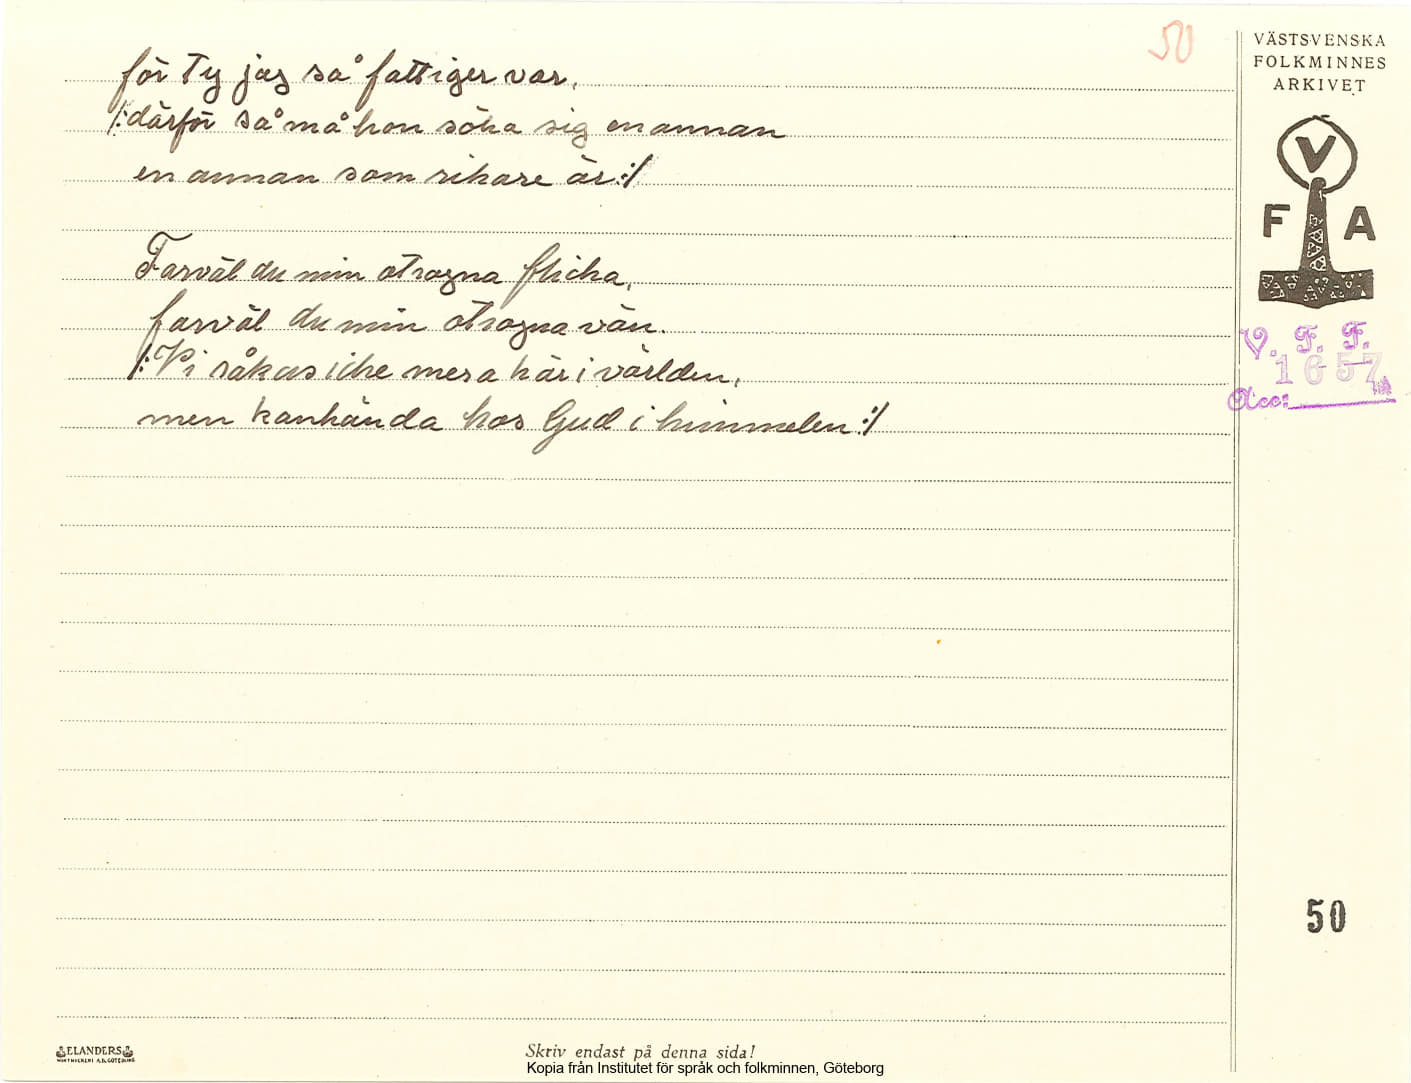 50
för Ty jag så fattiger var,
/:därför så må hon söka sig en annan
en annan som rikare är:/
Farväl du min otrogna flicka,
farväl du min otrogna vän.
/:Vi råkas icke mera här i världen,
men kanhända hos Gud i himmelen:/
VÄSTSVENSKA
FOLKMINNES
ARKIVET
V
F A
V. F. F.
1657
Acc:
50
ELANDERS
Skriv endast på denna sida!
Kopia från Institutet för språk och folkminnen, Göteborg